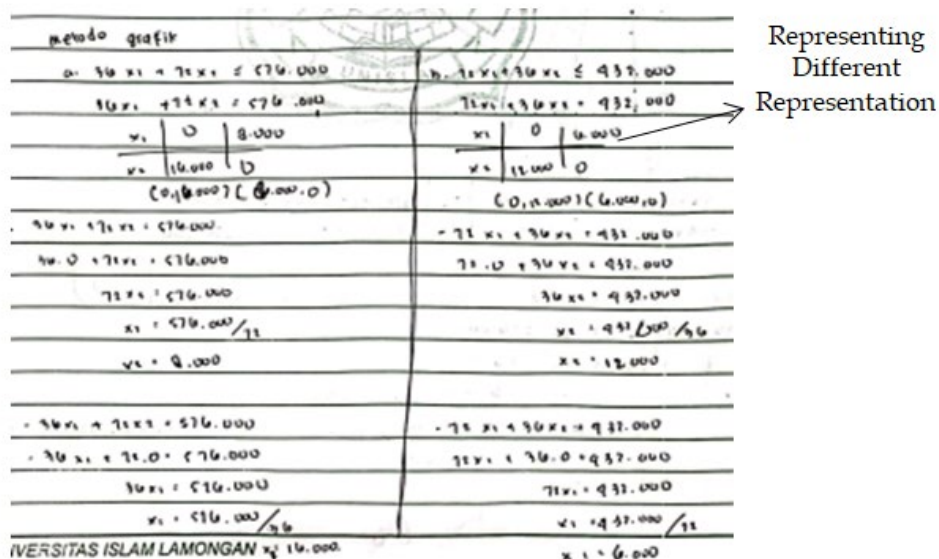 metode grafik
a. 36 x₁ + 72 x₂ ≤ 576.000
36 x₁ + 72 x₂ = 576.000
x₁ | 0 | 8.000
x₂ | 16.000 | 0
(0,16.000) (8.000,0)
36 x₁ + 72 x₂ = 576.000
36.0 + 72 x₂ = 576.000
72 x₂ = 576.000
x₂ = 576.000/72
x₂ = 8.000
- 36 x₁ + 72 x₂ = 576.000
- 36 x₁ + 72.0 = 576.000
36 x₁ = 576.000
x₁ = 576.000/36
x₁ = 16.000
b. 72 x₁ + 36 x₂ ≤ 432.000
72 x₁ + 36 x₂ = 432.000
x₁ | 0 | 6.000
x₂ | 12.000 | 0
(0,12.000) (6.000,0)
- 72 x₁ + 36 x₂ = 432.000
72.0 + 36 x₂ = 432.000
36 x₂ = 432.000
x₂ = 432.000/36
x₂ = 12.000
- 72 x₁ + 36 x₂ = 432.000
72 x₁ + 36.0 = 432.000
72 x₁ = 432.000
x₁ = 432.000/72
x₁ = 6.000
IVERSITAS ISLAM LAMONGAN
Representing
Different
Representation